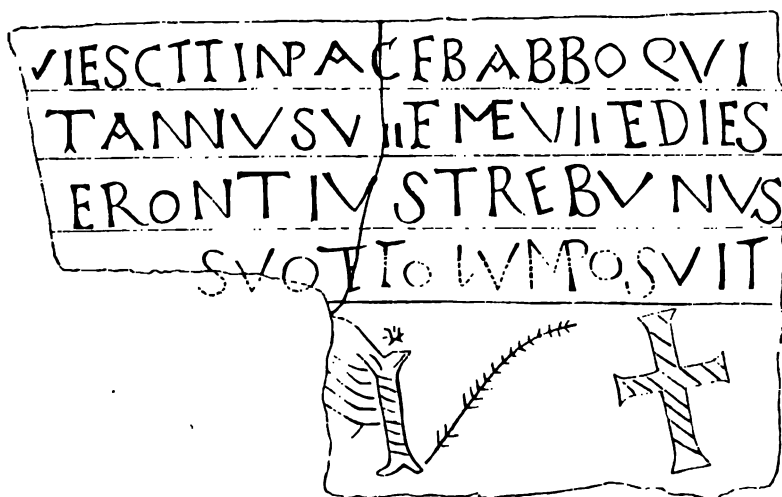 VIESCTTINPACEBABBOQVI
TANNVSVIIEMEVIIEDIES
ERONTIVSTREBVNVS
SVOTITOLVMPOSVIT